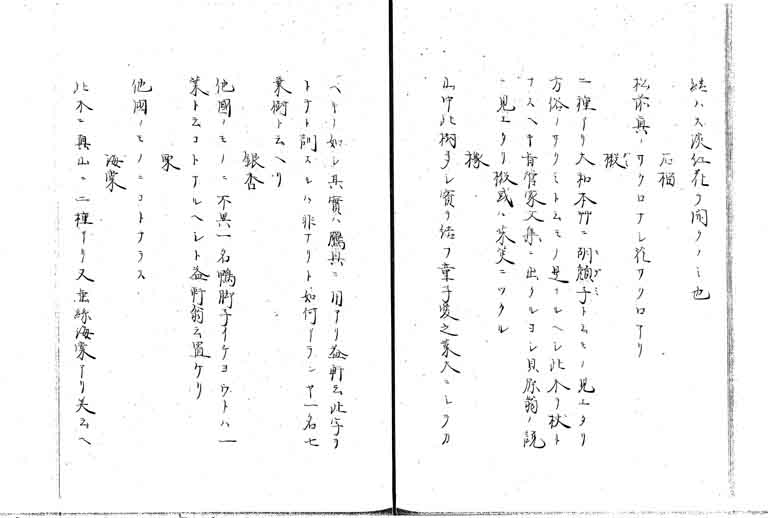 結ハス淡紅花ヲ開クノミ也
石榴
松前真ノサクロナシ花サクロアリ
椴
二種アリ大和本艸ニ胡頽子ト云モノ見エタリ
方俗ノサクミト云モノ是ナルヘシ此木ヲ杖ト
ナスヘキ旨管家文集ニ出タルヨシ貝原翁ノ説
ニ見エタリ椴或ハ茱萸ニツクル
橡
山中此樹多シ實ヲ結フ童子愛之葉大ニシテカ
ヘテノ如シ其實ハ鷹具ニ用アリ益軒云此字ヲ
トチト訓スルハ非ナリト如何アランヤ一名七
葉樹ト云ヘリ
銀杏
他國ノモノニ不異一名鴨脚子イケヨウトハ一
葉ト云コトナルヘシト益軒翁云置ケリ
栗
他國ノモノニコトナラス
海棠
此木ニ真山ニ二種アリ又垂絲海棠アリ共云ヘ